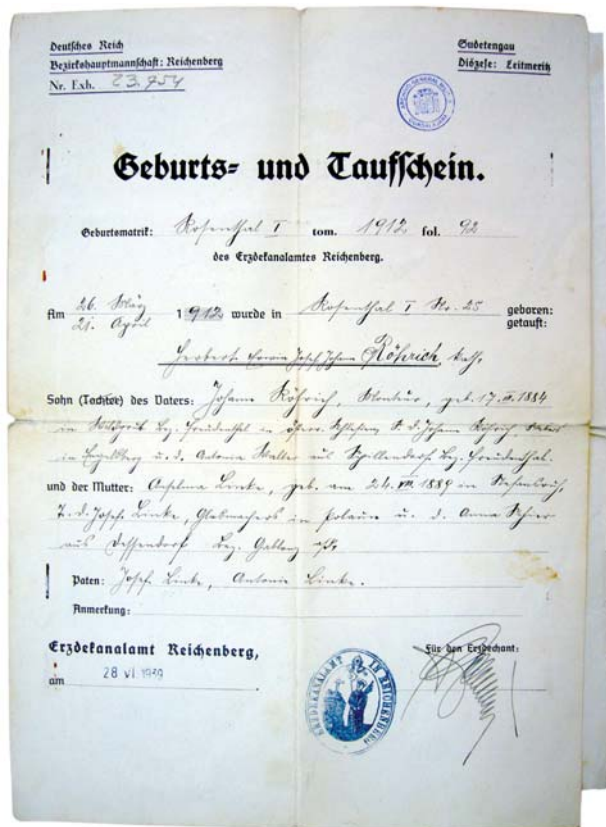 Deutsches Reich
Bezirkshauptmannschaft: Reichenberg
Nr. Exh. 23.754
Sudetengau
Diözese: Leitmeritz
Geburts- und Taufschein.
Geburtsmatrik: Rosenthal I tom. 1912 fol. 92
des Erzdekanalamtes Reichenberg.
Am 26. März 1912 wurde in Rosenthal I Nr. 25 geboren:
21. April getauft:
Herbert Erwin Josef Johann Röhrich, kath.
Sohn (Tochter) des Vaters: Johann Röhrich, Monteur, geb. 17. 1884
in Bez. Freudenthal in österr. Schlesien S. d. Johann Röhrich,
in Engelsberg u. d. Antonia Walter aus Spillendorf Bez. Freudenthal.
und der Mutter: Anselma Linke, geb. am 24. VIII 1889 in Stefansruh,
T. d. Josef Linke, Glasmachers in Polaun u. d. Anna
aus Dessendorf Bez. Gablonz
Paten: Josef Linke, Antonie Linke.
Anmerkung:
Erzdekanalamt Reichenberg,
am 28 VI. 1939
Für den Erzdechant:
ERZDEKANALAMT IN REICHENBERG